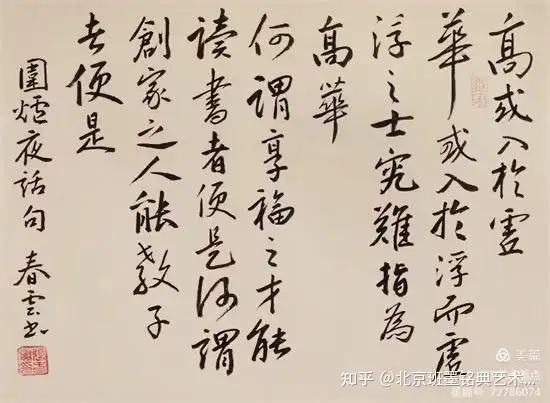 高或入於虛
華或入於浮而虛
浮之士究難指為
高華
何謂享福之才能
读書者便是何謂
創家之人能教子
者便是
圍爐夜話句 春雲书
美篇
知乎 @北京班墨铭典艺术...
美篇号 72786074